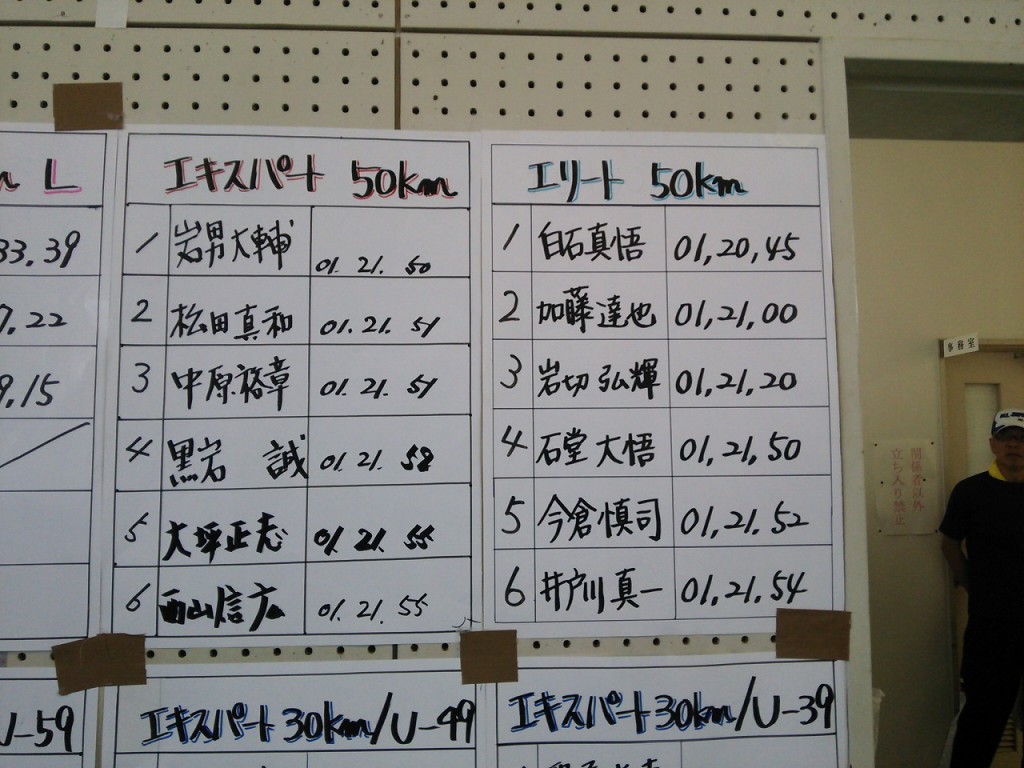 L
33.39
7.22
9.15
エキスパート 50km
1 岩男大輔 01. 21. 50
2 松田真和 01. 21. 51
3 中原裕章 01. 21. 51
4 黒岩 誠 01. 21. 52
5 大坪正志 01. 21. 55
6 西山信広 01. 21. 55
エリート 50km
1 白石真悟 01,20,45
2 加藤達也 01,21,00
3 岩切弘輝 01,21,20
4 石堂大悟 01,21,50
5 今倉慎司 01,21,52
6 井戸川真一 01,21,54
U-59
エキスパート30km/U-49
エキスパート30km/U-39
事務室
関係者以外
立ち入り禁止